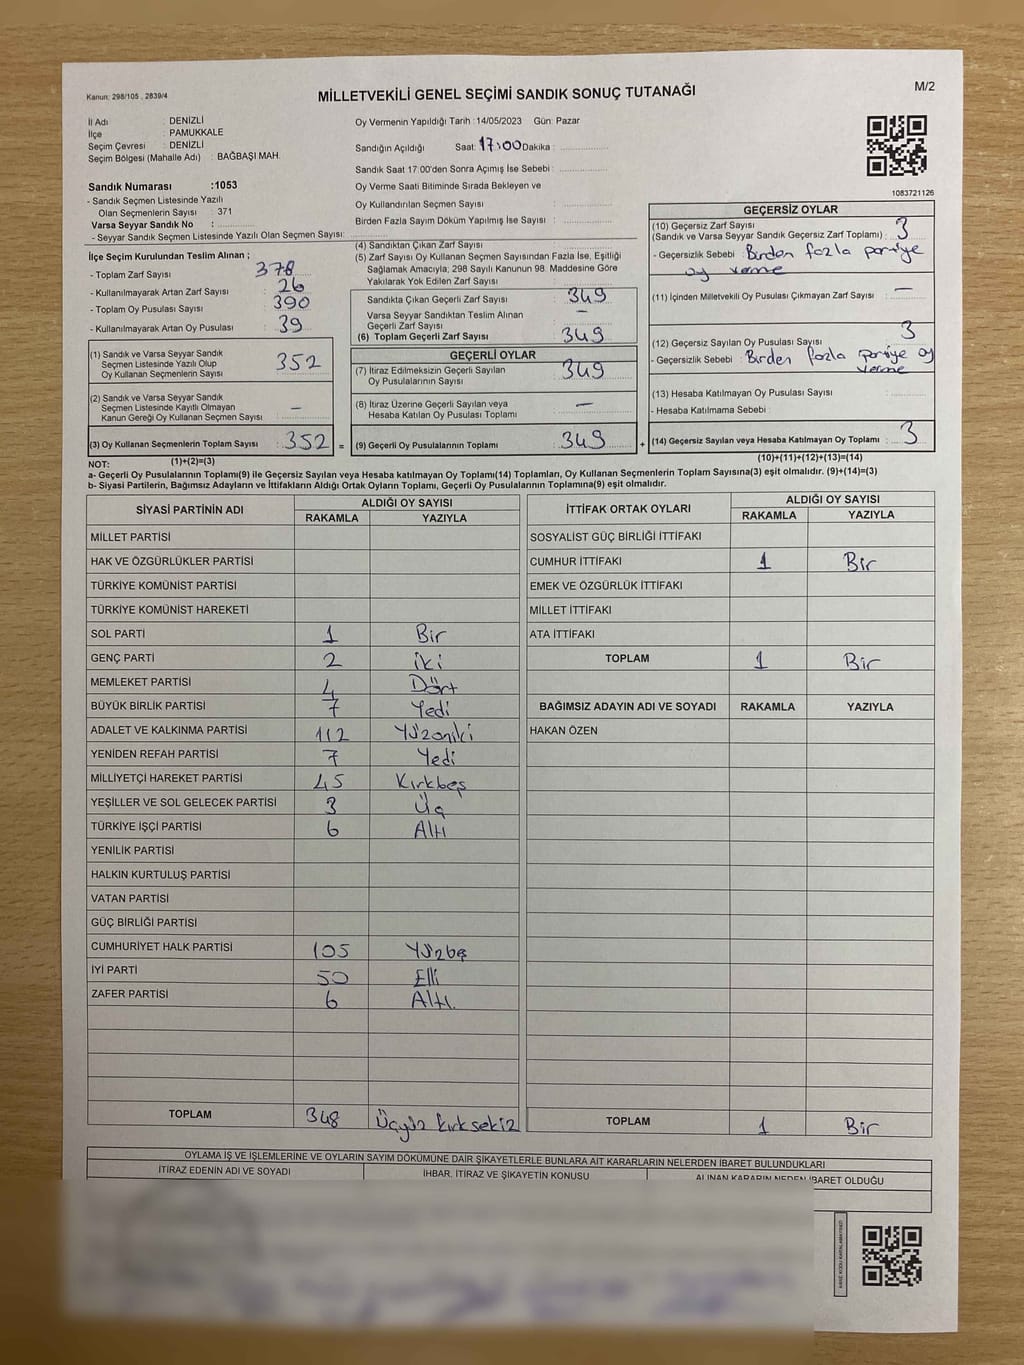 Kanun: 298/105 , 2839/4
MİLLETVEKİLİ GENEL SEÇİMİ SANDIK SONUÇ TUTANAĞI
M/2
İl Adı : DENİZLİ
İlçe : PAMUKKALE
Seçim Çevresi : DENİZLİ
Seçim Bölgesi (Mahalle Adı) : BAĞBAŞI MAH.
Sandık Numarası :1053
- Sandık Seçmen Listesinde Yazılı
Olan Seçmenlerin Sayısı : 371
Varsa Seyyar Sandık No :
- Seyyar Sandık Seçmen Listesinde Yazılı Olan Seçmen Sayısı:
Oy Vermenin Yapıldığı Tarih : 14/05/2023 Gün: Pazar
Sandığın Açıldığı Saat: 17:00 Dakika :
Sandık Saat 17:00'den Sonra Açımış İse Sebebi :
Oy Verme Saati Bitiminde Sırada Bekleyen ve
Oy Kullandırılan Seçmen Sayısı :
Birden Fazla Sayım Döküm Yapılmış İse Sayısı :
1083721126
İlçe Seçim Kurulundan Teslim Alınan ;
- Toplam Zarf Sayısı : 378
- Kullanılmayarak Artan Zarf Sayısı : 26
- Toplam Oy Pusulası Sayısı : 390
- Kullanılmayarak Artan Oy Pusulası : 39
(1) Sandık ve Varsa Seyyar Sandık
Seçmen Listesinde Yazılı Olup
Oy Kullanan Seçmenlerin Sayısı : 352
(2) Sandık ve Varsa Seyyar Sandık
Seçmen Listesinde Kayıtlı Olmayan
Kanun Gereği Oy Kullanan Seçmen Sayısı : –
(3) Oy Kullanan Seçmenlerin Toplam Sayısı : 352 =
(1)+(2)=(3)
(4) Sandıktan Çıkan Zarf Sayısı :
(5) Zarf Sayısı Oy Kullanan Seçmen Sayısından Fazla İse, Eşitliği
Sağlamak Amacıyla; 298 Sayılı Kanunun 98. Maddesine Göre
Yakılarak Yok Edilen Zarf Sayısı :
Sandıkta Çıkan Geçerli Zarf Sayısı : 349
Varsa Seyyar Sandıktan Teslim Alınan
Geçerli Zarf Sayısı : –
(6) Toplam Geçerli Zarf Sayısı : 349
GEÇERLİ OYLAR
(7) İtiraz Edilmeksizin Geçerli Sayılan
Oy Pusulalarının Sayısı : 349
(8) İtiraz Üzerine Geçerli Sayılan veya
Hesaba Katılan Oy Pusulası Toplamı : –
(9) Geçerli Oy Pusulalarının Toplamı : 349 +
GEÇERSİZ OYLAR
(10) Geçersiz Zarf Sayısı
(Sandık ve Varsa Seyyar Sandık Geçersiz Zarf Toplamı) : 3
- Geçersizlik Sebebi : Birden fazla partiye
oy verme
(11) İçinden Milletvekili Oy Pusulası Çıkmayan Zarf Sayısı : –
(12) Geçersiz Sayılan Oy Pusulası Sayısı : 3
- Geçersizlik Sebebi : Birden fazla partiye oy
verme
(13) Hesaba Katılmayan Oy Pusulası Sayısı :
- Hesaba Katılmama Sebebi :
(14) Geçersiz Sayılan veya Hesaba Katılmayan Oy Toplamı : 3
(10)+(11)+(12)+(13)=(14)
NOT:
a- Geçerli Oy Pusulalarının Toplamı(9) ile Geçersiz Sayılan veya Hesaba katılmayan Oy Toplamı(14) Toplamları, Oy Kullanan Seçmenlerin Toplam Sayısına(3) eşit olmalıdır. (9)+(14)=(3)
b- Siyasi Partilerin, Bağımsız Adayların ve İttifakların Aldığı Ortak Oyların Toplamı, Geçerli Oy Pusulalarının Toplamına(9) eşit olmalıdır.
SİYASİ PARTİNİN ADI
ALDIĞI OY SAYISI
RAKAMLA YAZIYLA
MİLLET PARTİSİ
HAK VE ÖZGÜRLÜKLER PARTİSİ
TÜRKİYE KOMÜNİST PARTİSİ
TÜRKİYE KOMÜNİST HAREKETİ
SOL PARTİ 1 Bir
GENÇ PARTİ 2 iki
MEMLEKET PARTİSİ 4 Dört
BÜYÜK BİRLİK PARTİSİ 7 Yedi
ADALET VE KALKINMA PARTİSİ 112 Yüzoniki
YENİDEN REFAH PARTİSİ 7 Yedi
MİLLİYETÇİ HAREKET PARTİSİ 45 Kırkbeş
YEŞİLLER VE SOL GELECEK PARTİSİ 3 Üç
TÜRKİYE İŞÇİ PARTİSİ 6 Altı
YENİLİK PARTİSİ
HALKIN KURTULUŞ PARTİSİ
VATAN PARTİSİ
GÜÇ BİRLİĞİ PARTİSİ
CUMHURİYET HALK PARTİSİ 105 Yüzbeş
İYİ PARTİ 50 Elli
ZAFER PARTİSİ 6 Altı.
TOPLAM 348 Üçyüz kırksekiz
İTTİFAK ORTAK OYLARI
ALDIĞI OY SAYISI
RAKAMLA YAZIYLA
SOSYALİST GÜÇ BİRLİĞİ İTTİFAKI
CUMHUR İTTİFAKI 1 Bir
EMEK VE ÖZGÜRLÜK İTTİFAKI
MİLLET İTTİFAKI
ATA İTTİFAKI
TOPLAM 1 Bir
BAĞIMSIZ ADAYIN ADI VE SOYADI RAKAMLA YAZIYLA
HAKAN ÖZEN
TOPLAM 1 Bir
OYLAMA İŞ VE İŞLEMLERİNE VE OYLARIN SAYIM DÖKÜMÜNE DAİR ŞİKAYETLERLE BUNLARA AİT KARARLARIN NELERDEN İBARET BULUNDUKLARI
İTİRAZ EDENİN ADI VE SOYADI
İHBAR, İTİRAZ VE ŞİKAYETİN KONUSU
ALINAN KARARIN NEDEN İBARET OLDUĞU